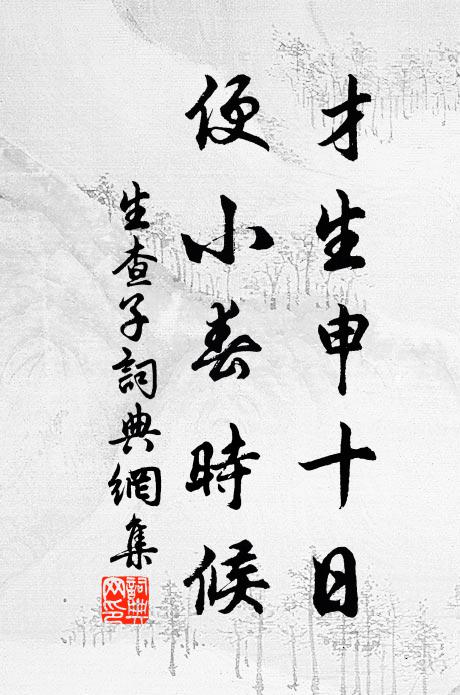 才生申十日
便小春時候
生查子詞典網集
詞典
网印